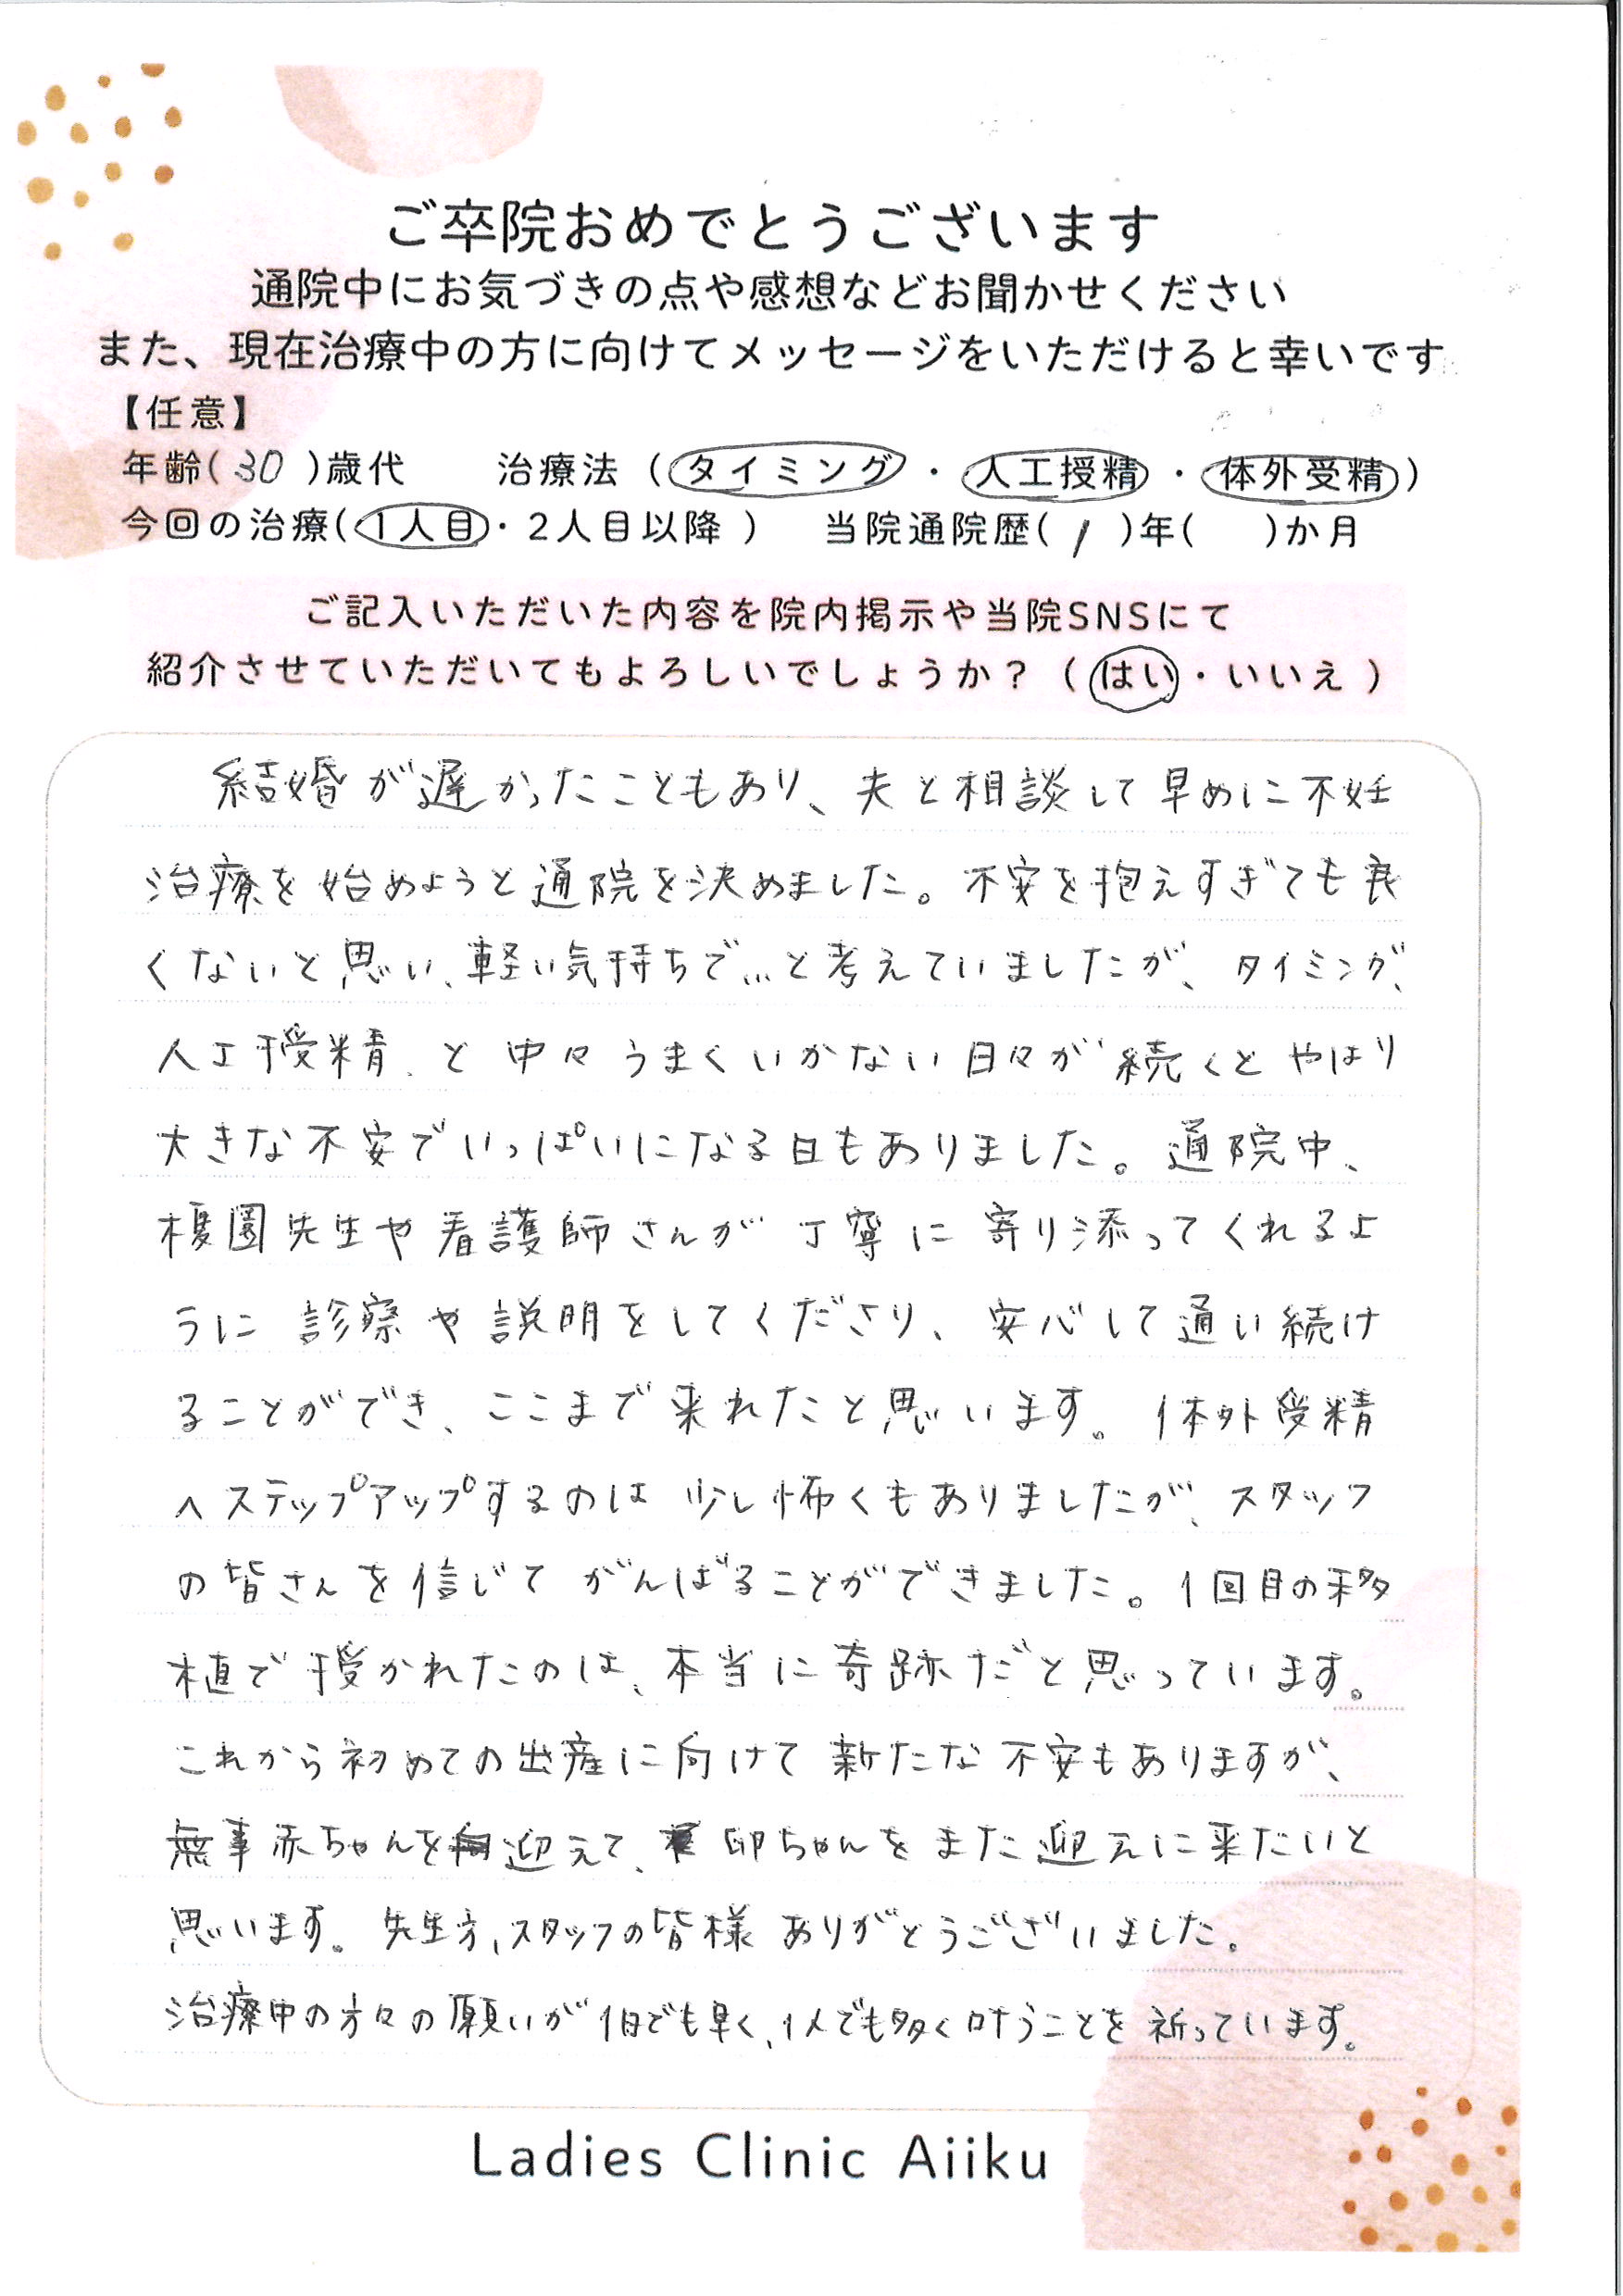 ご卒院おめでとうございます
通院中にお気づきの点や感想などお聞かせください
また、現在治療中の方に向けてメッセージをいただけると幸いです
【任意】
年齢( 30 )歳代　治療法（タイミング・人工授精・体外受精）
今回の治療(1人目・2人目以降 )　当院通院歴( 1 )年(　)か月
ご記入いただいた内容を院内掲示や当院SNSにて
紹介させていただいてもよろしいでしょうか？（はい・いいえ）
結婚が遅かったこともあり、夫と相談して早めに不妊
治療を始めようと通院を決めました。不安を抱えすぎても良
くないと思い、軽い気持ちで…と考えていましたが、タイミング、
人工授精、と中々うまくいかない日々が続くとやはり
大きな不安でいっぱいになる日もありました。通院中、
榎園先生や看護師さんが丁寧に寄り添ってくれるよ
うに診察や説明をしてくださり、安心して通い続け
ることができ、ここまで来れたと思います。体外受精
へステップアップするのは少し怖くもありましたが、スタッフ
の皆さんを信じてがんばることができました。1回目の移
植で授かれたのは、本当に奇跡だと思っています。
これから初めての出産に向けて新たな不安もありますが、
無事赤ちゃんを迎えて、卵ちゃんをまた迎えに来たいと
思います。先生方、スタッフの皆様ありがとうございました。
治療中の方々の願いが1日でも早く、1人でも多く叶うことを祈っています。
Ladies Clinic Aiiku